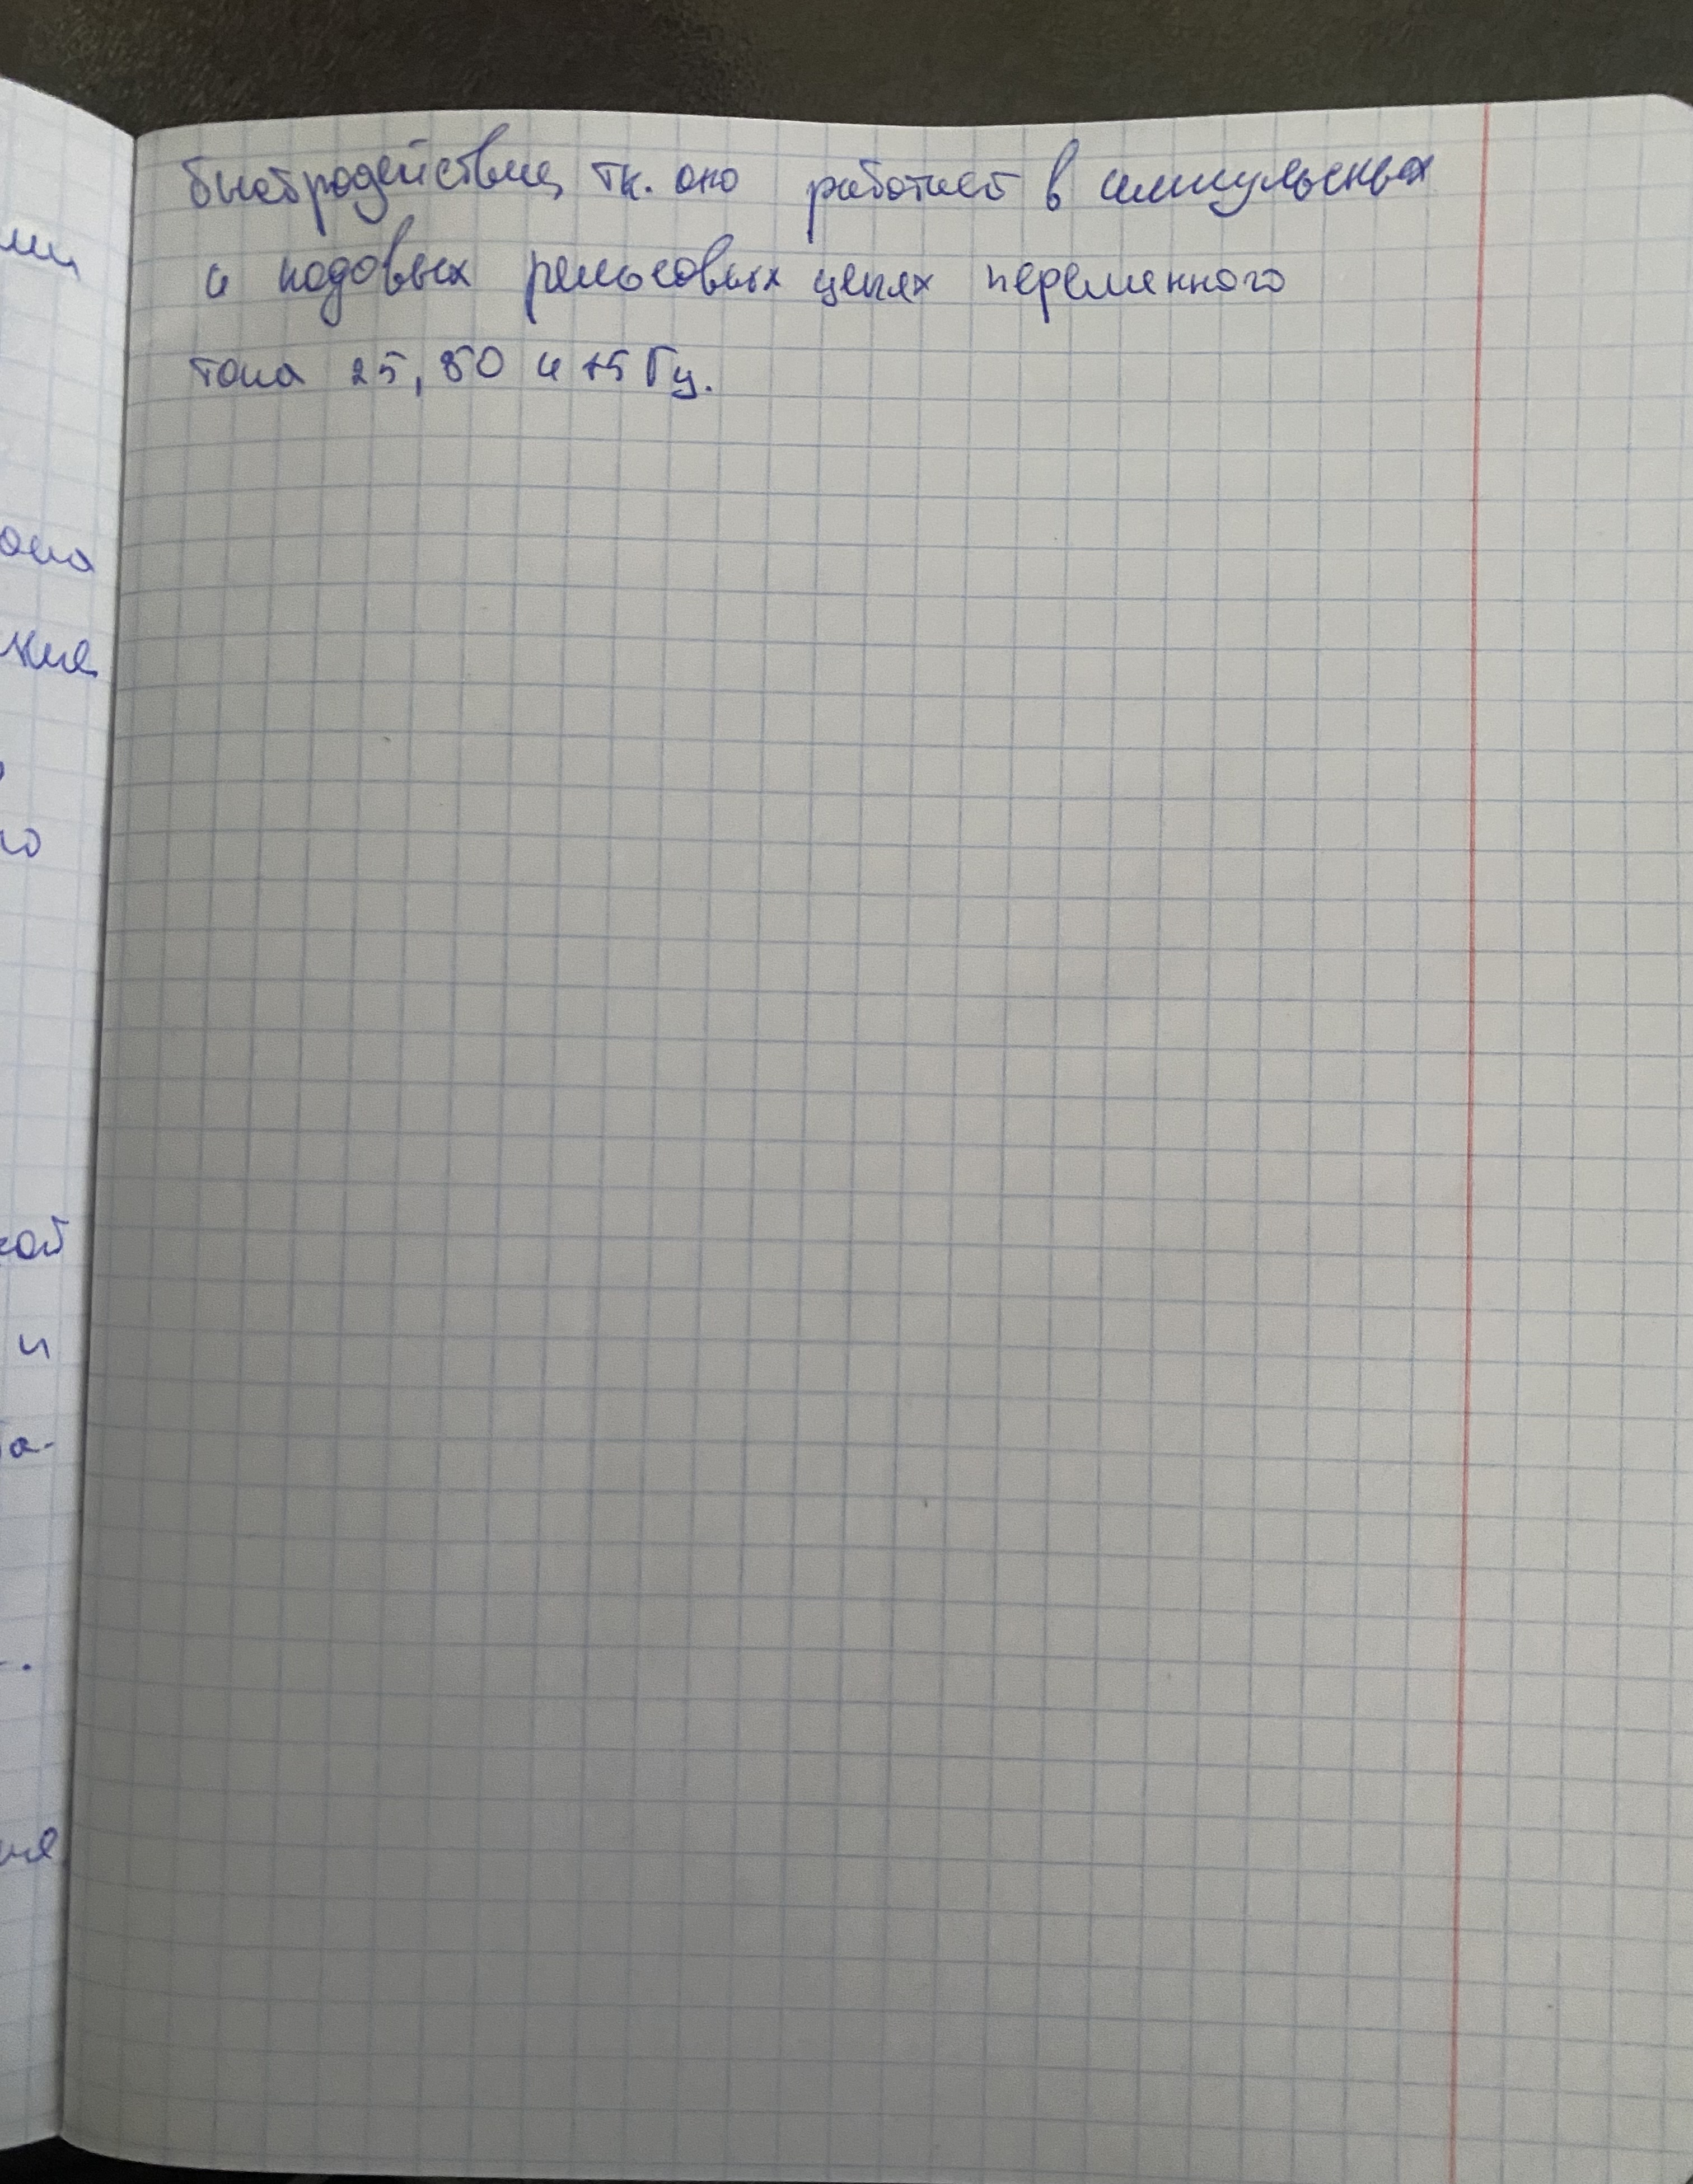 быстродействие, т.к. оно работает в импульсных
и кодовых рельсовых цепях переменного
тока 25, 50 и 75 Гц.